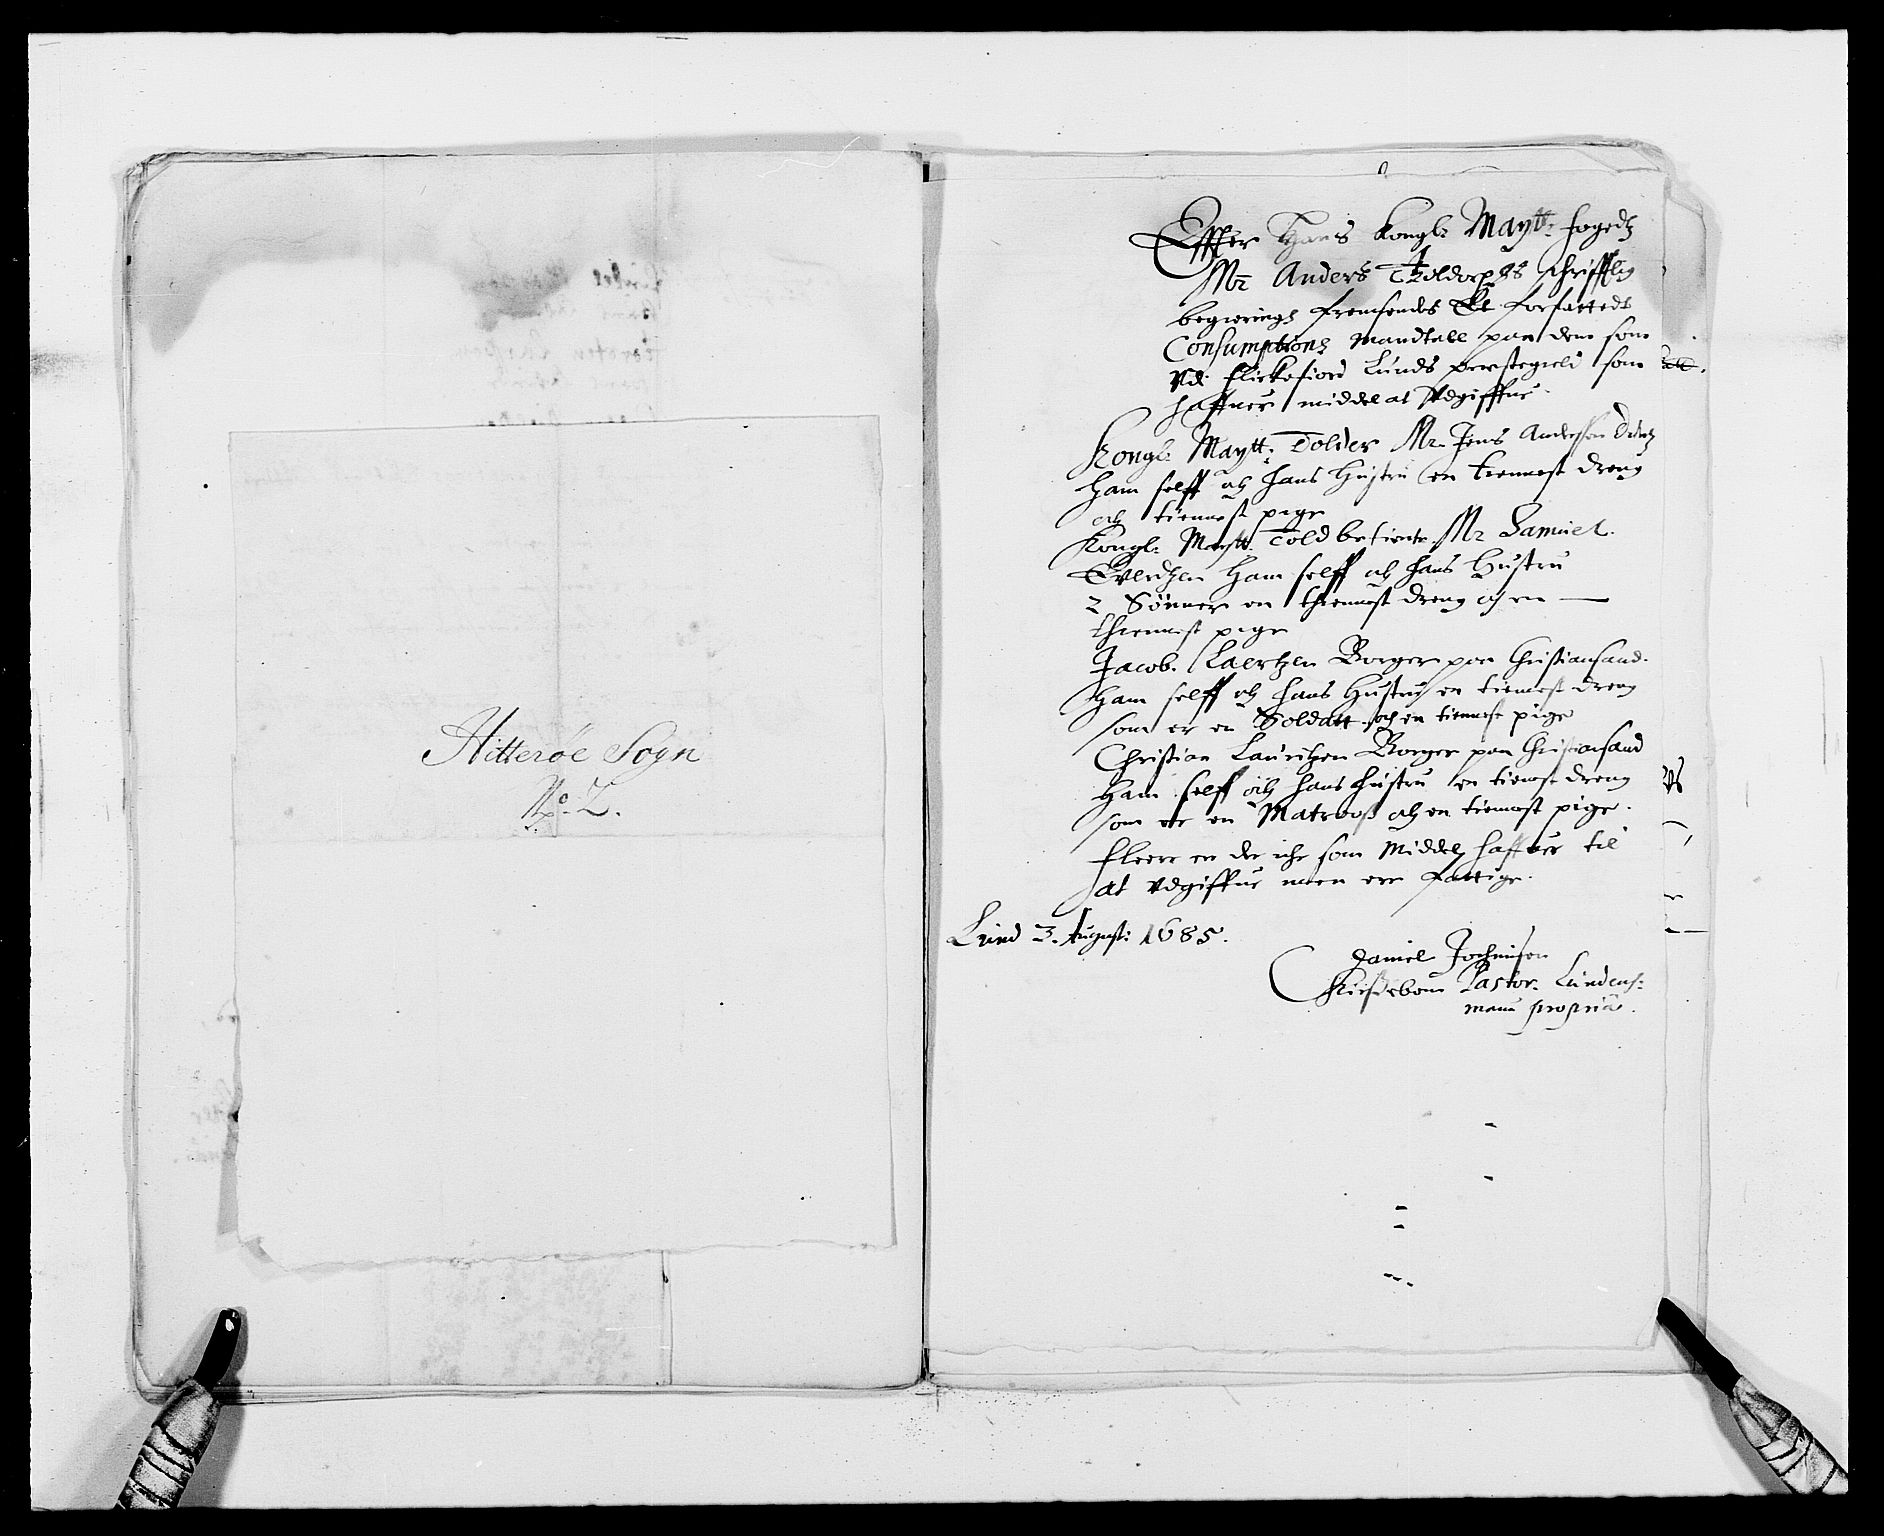 Hitterøe Sogn
No. 2.
Effter Hans Kongl: Maytt: fogedtz
Mr Anders Tholdorphs schrifftlig
begierings fremsendes Et forfattede
Consumptions Mandtall paa dem som
Vdi Fleckefiord Lunds prestegield som
haffuer middel at Vdgiffue.
Kongl: Maytt: Tolder Mr Jens Andersøn
ham selff och hans Hustru en tienneste dreng
och tienneste pige
Kongl: Maytt. Toldbetiente Mr Samuel
Evertzen ham selff och hans Hustru
2 Sønner en thienneste dreng och en
thienneste pige
Jacob Laertzen Borger paa Christiansand.
ham selff och hans Hustru en tienneste dreng
som er en Soldatt och en tienneste pige
Christian Lauritzen Borger paa Christiansand
Ham selff och hans hustru en tienneste dreng
som er en Matrooß och en tienneste pige.
Fleere er der iche som Middel haffuer til
at Vdgiffue men ere fattige.
Lund 3. Augusti 1685.
Daniel Jochimsen
Pastor Lundens:
manu propria.